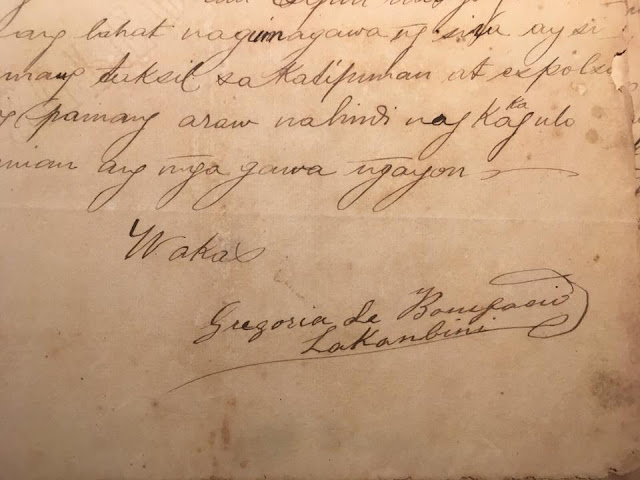 ang lahat nagumagawa ng siya ay si
tuksil sa Katipunan at espolsi
pamang araw nahindi nag Kakagulo
ang mga gawa ngayon
Wakas
Gregoria de Bonifacio
Lakanbini